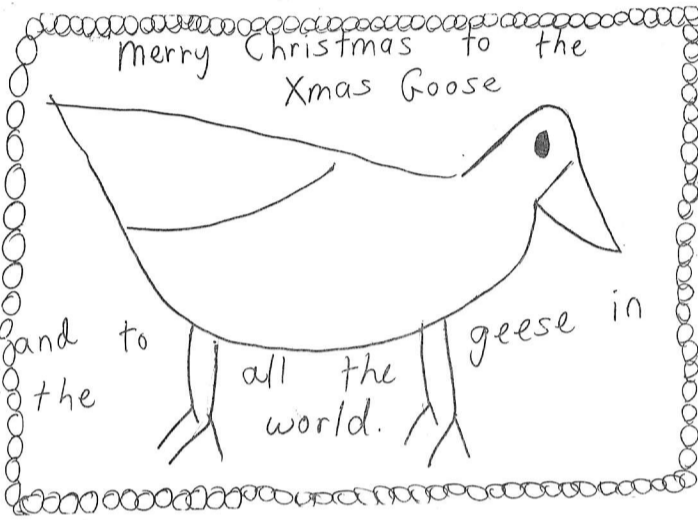 Merry Christmas to the
Xmas Goose
and to all the geese in
the world.